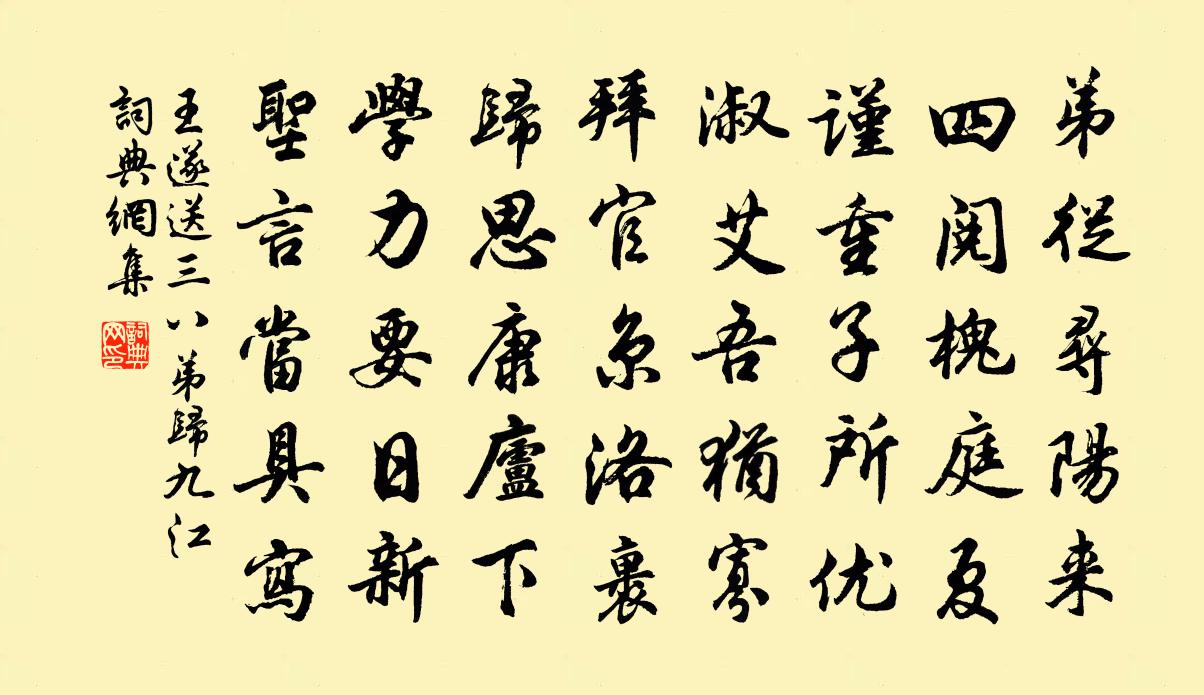 弟從尋陽来
四閱槐庭夏
謹重子所优
淑艾吾猶寡
拜官京洛裏
歸思康廬下
學力要日新
聖言當具寫
王遂送三八弟歸九江
詞典網集
詞典网印